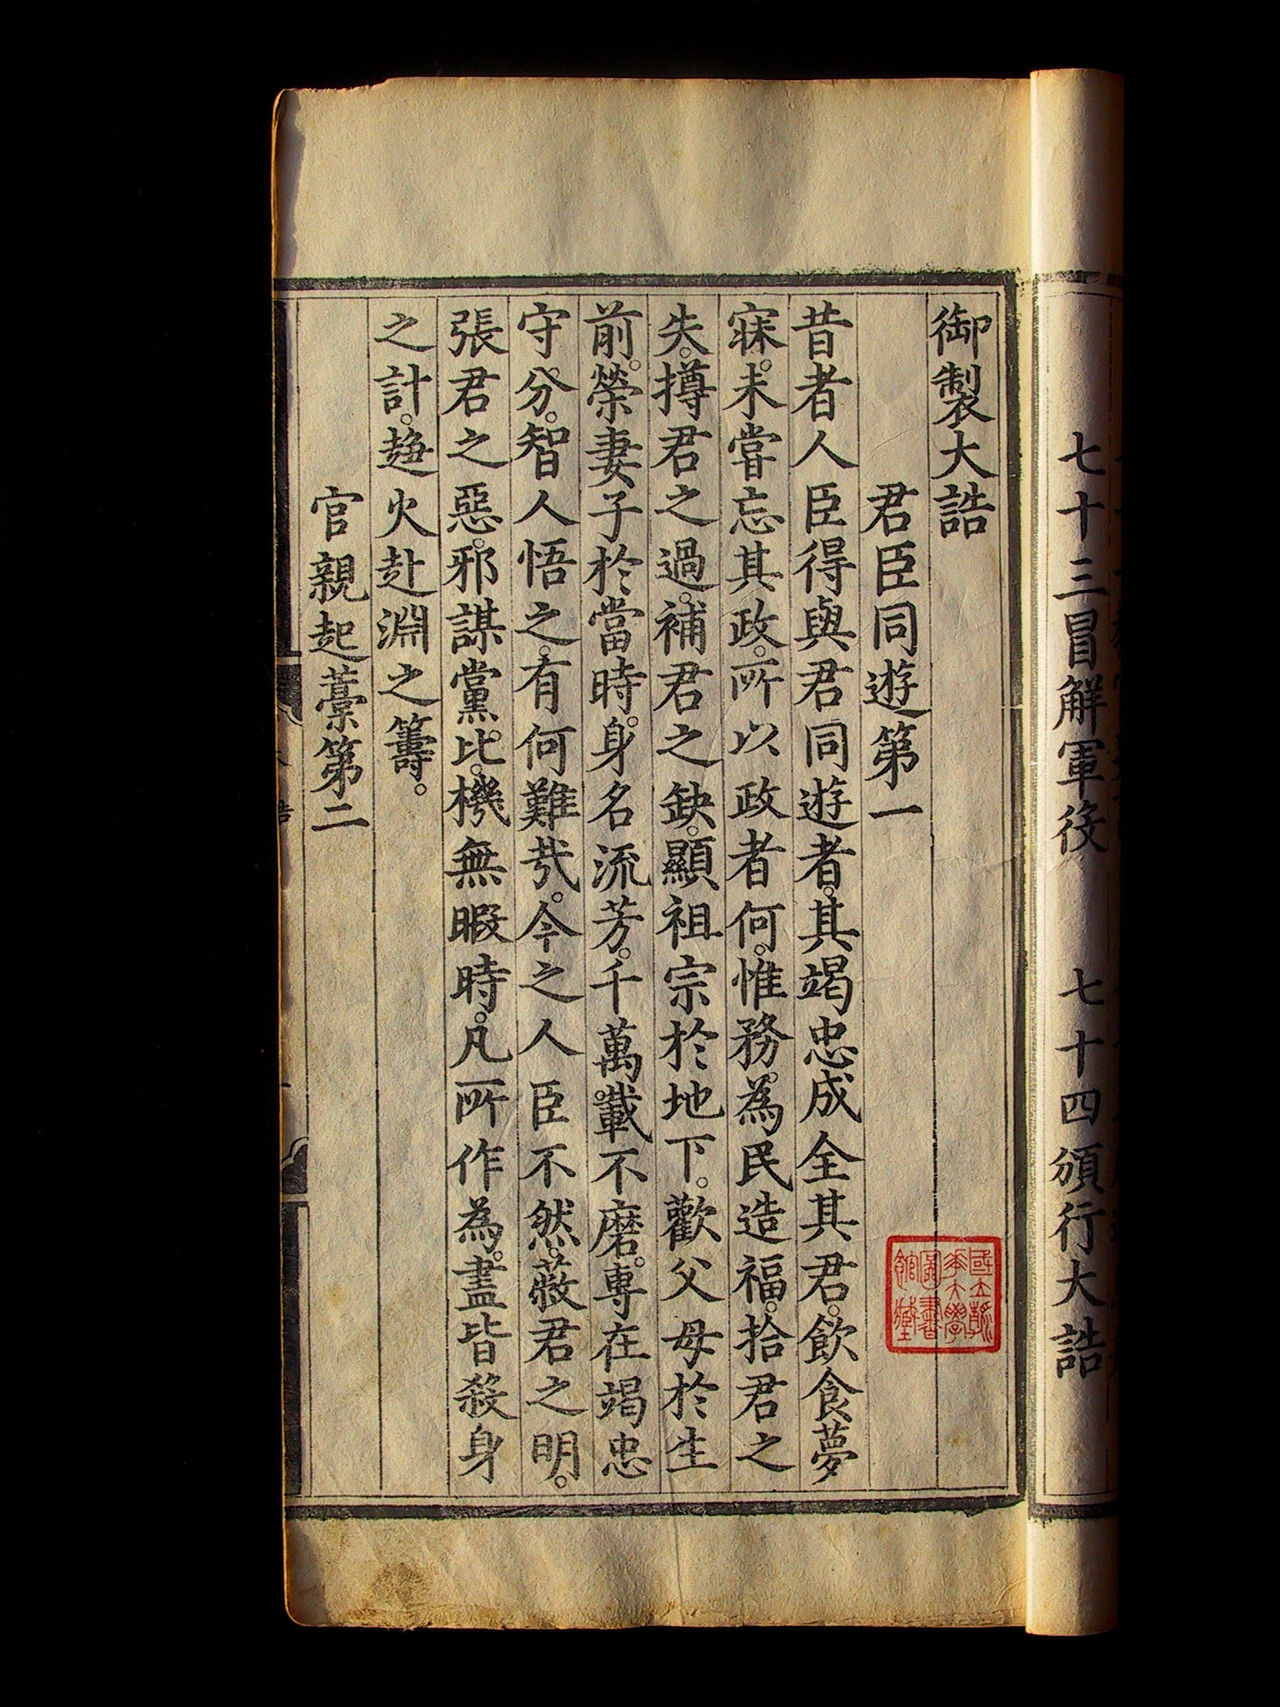 七十三冒解軍役　七十四頒行大誥
御製大誥
君臣同遊第一
昔者人臣得與君同遊者。其竭忠成全其君。飲食夢
寐。未嘗忘其政。所以政者何。惟務。為民造福。拾君之
失。撙君之過。補君之缺。顯祖宗於地下。歡父母於生
前。榮妻子於當時。身名流芳。千萬載不磨。專在竭忠
守分。智人悟之。有何難哉。今之人臣不然。蔽君之明。
張君之惡。邪謀黨比。機無暇時。凡所作為。盡皆殺身
之計。趍火赴淵之籌。
官親起藁第二
國立政
大學
圖書
館藏